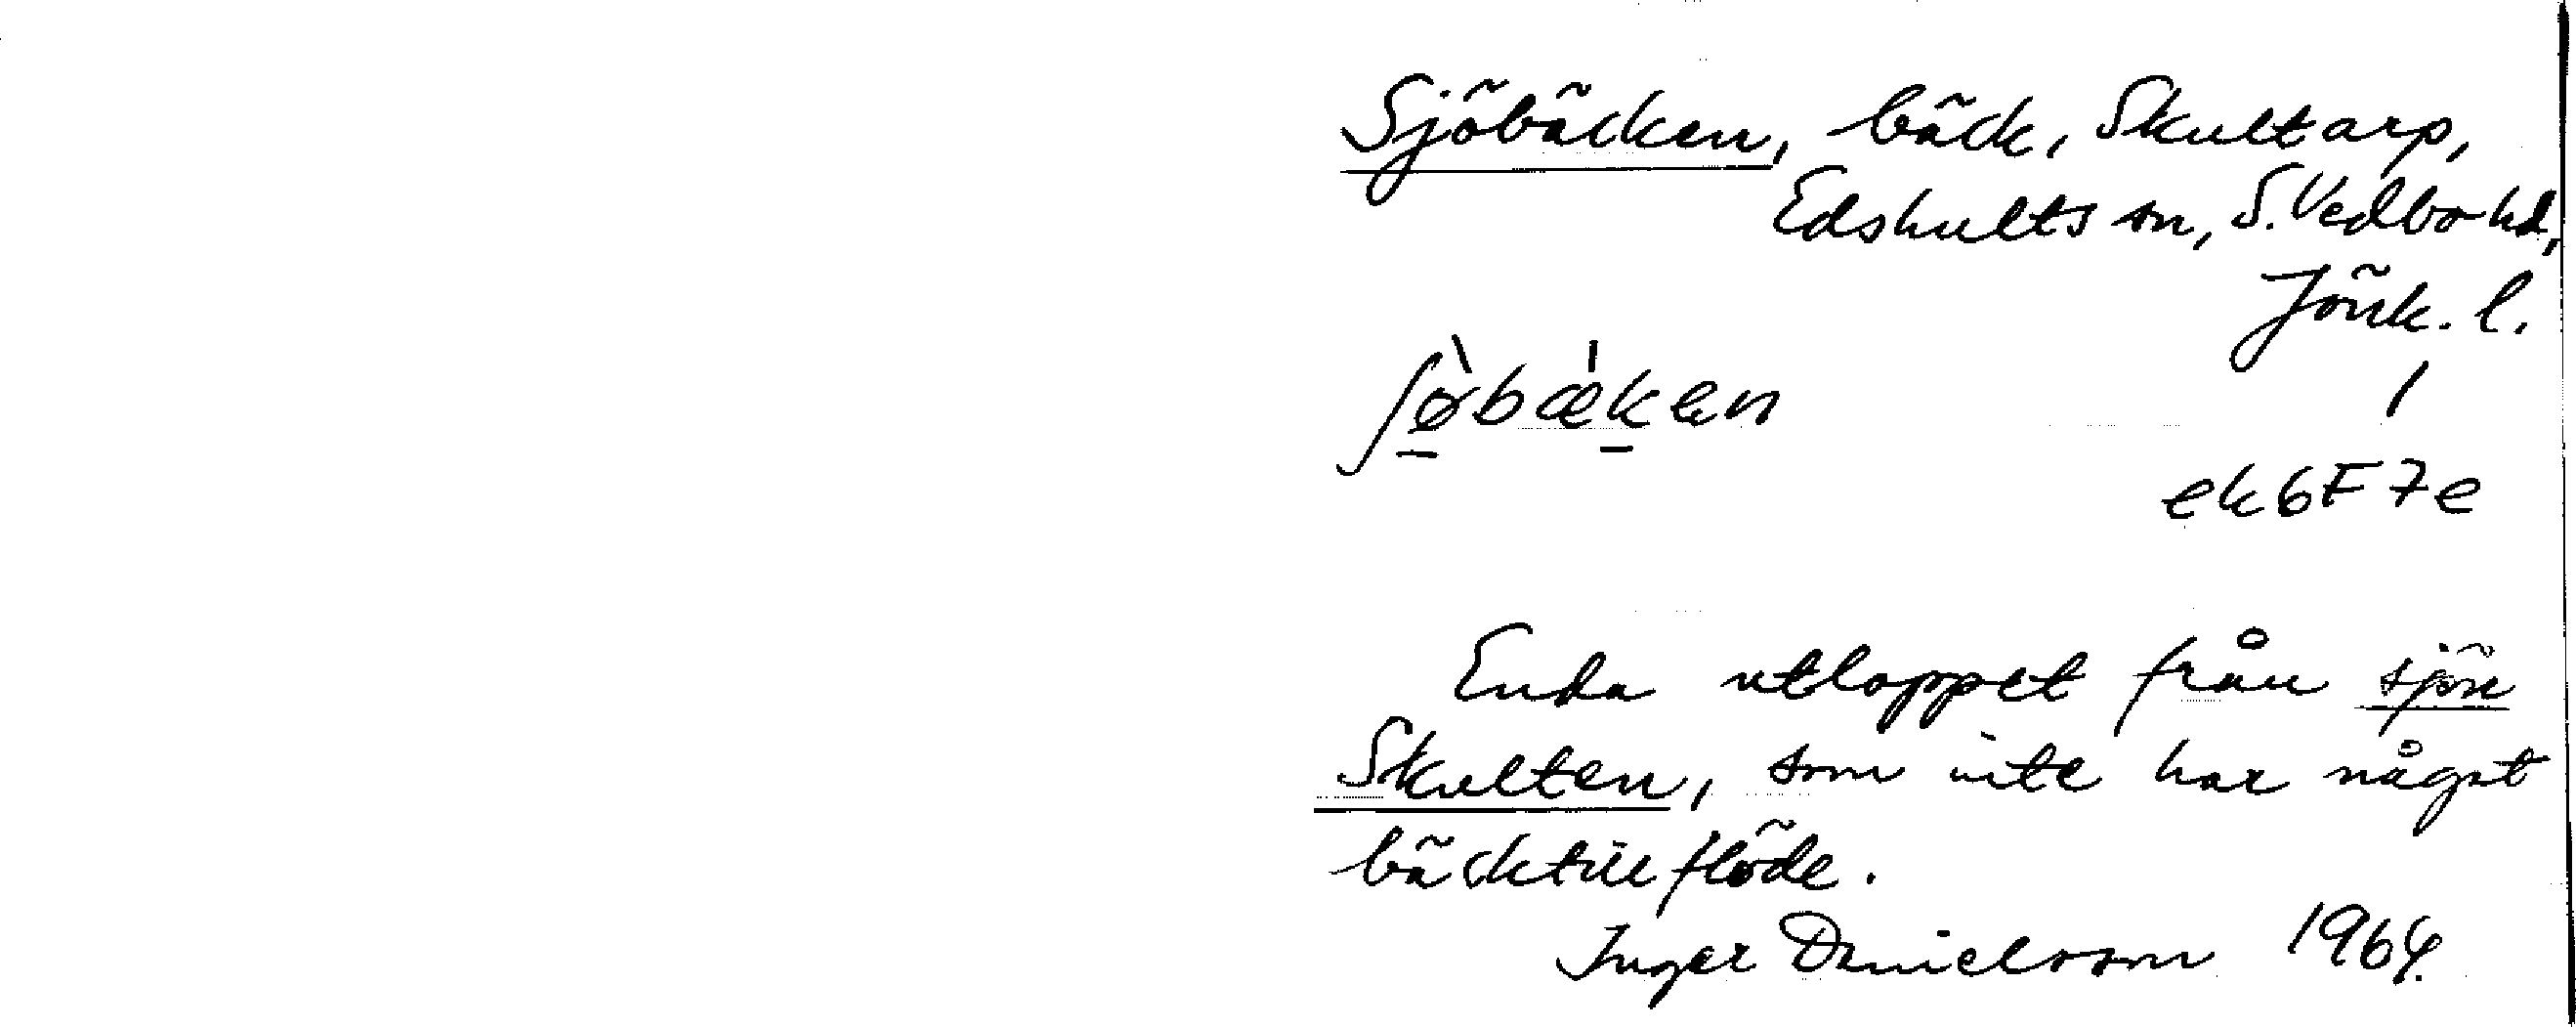 Sjöbäcken, bäck, Skultarp,
Edshults sn, S. Vedbo hd,
Jönk. l.
ʃø̠̀bæ̀k̠en
1
ek 6F 7e
Enda utloppet från sjön
Skulten, som inte har något
bäcktillflöde.
Inger Danielsson 1964.